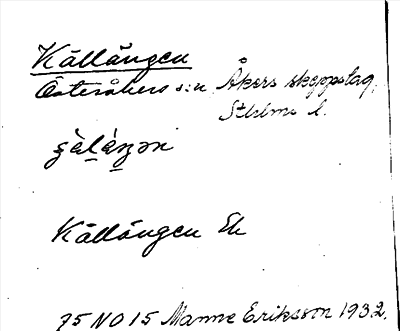 Källängen
Österåkers s:n, Åkers skeppslag,
Sthlms l.
Källängen Ek
75 NO 15 Manne Eriksson 1932.